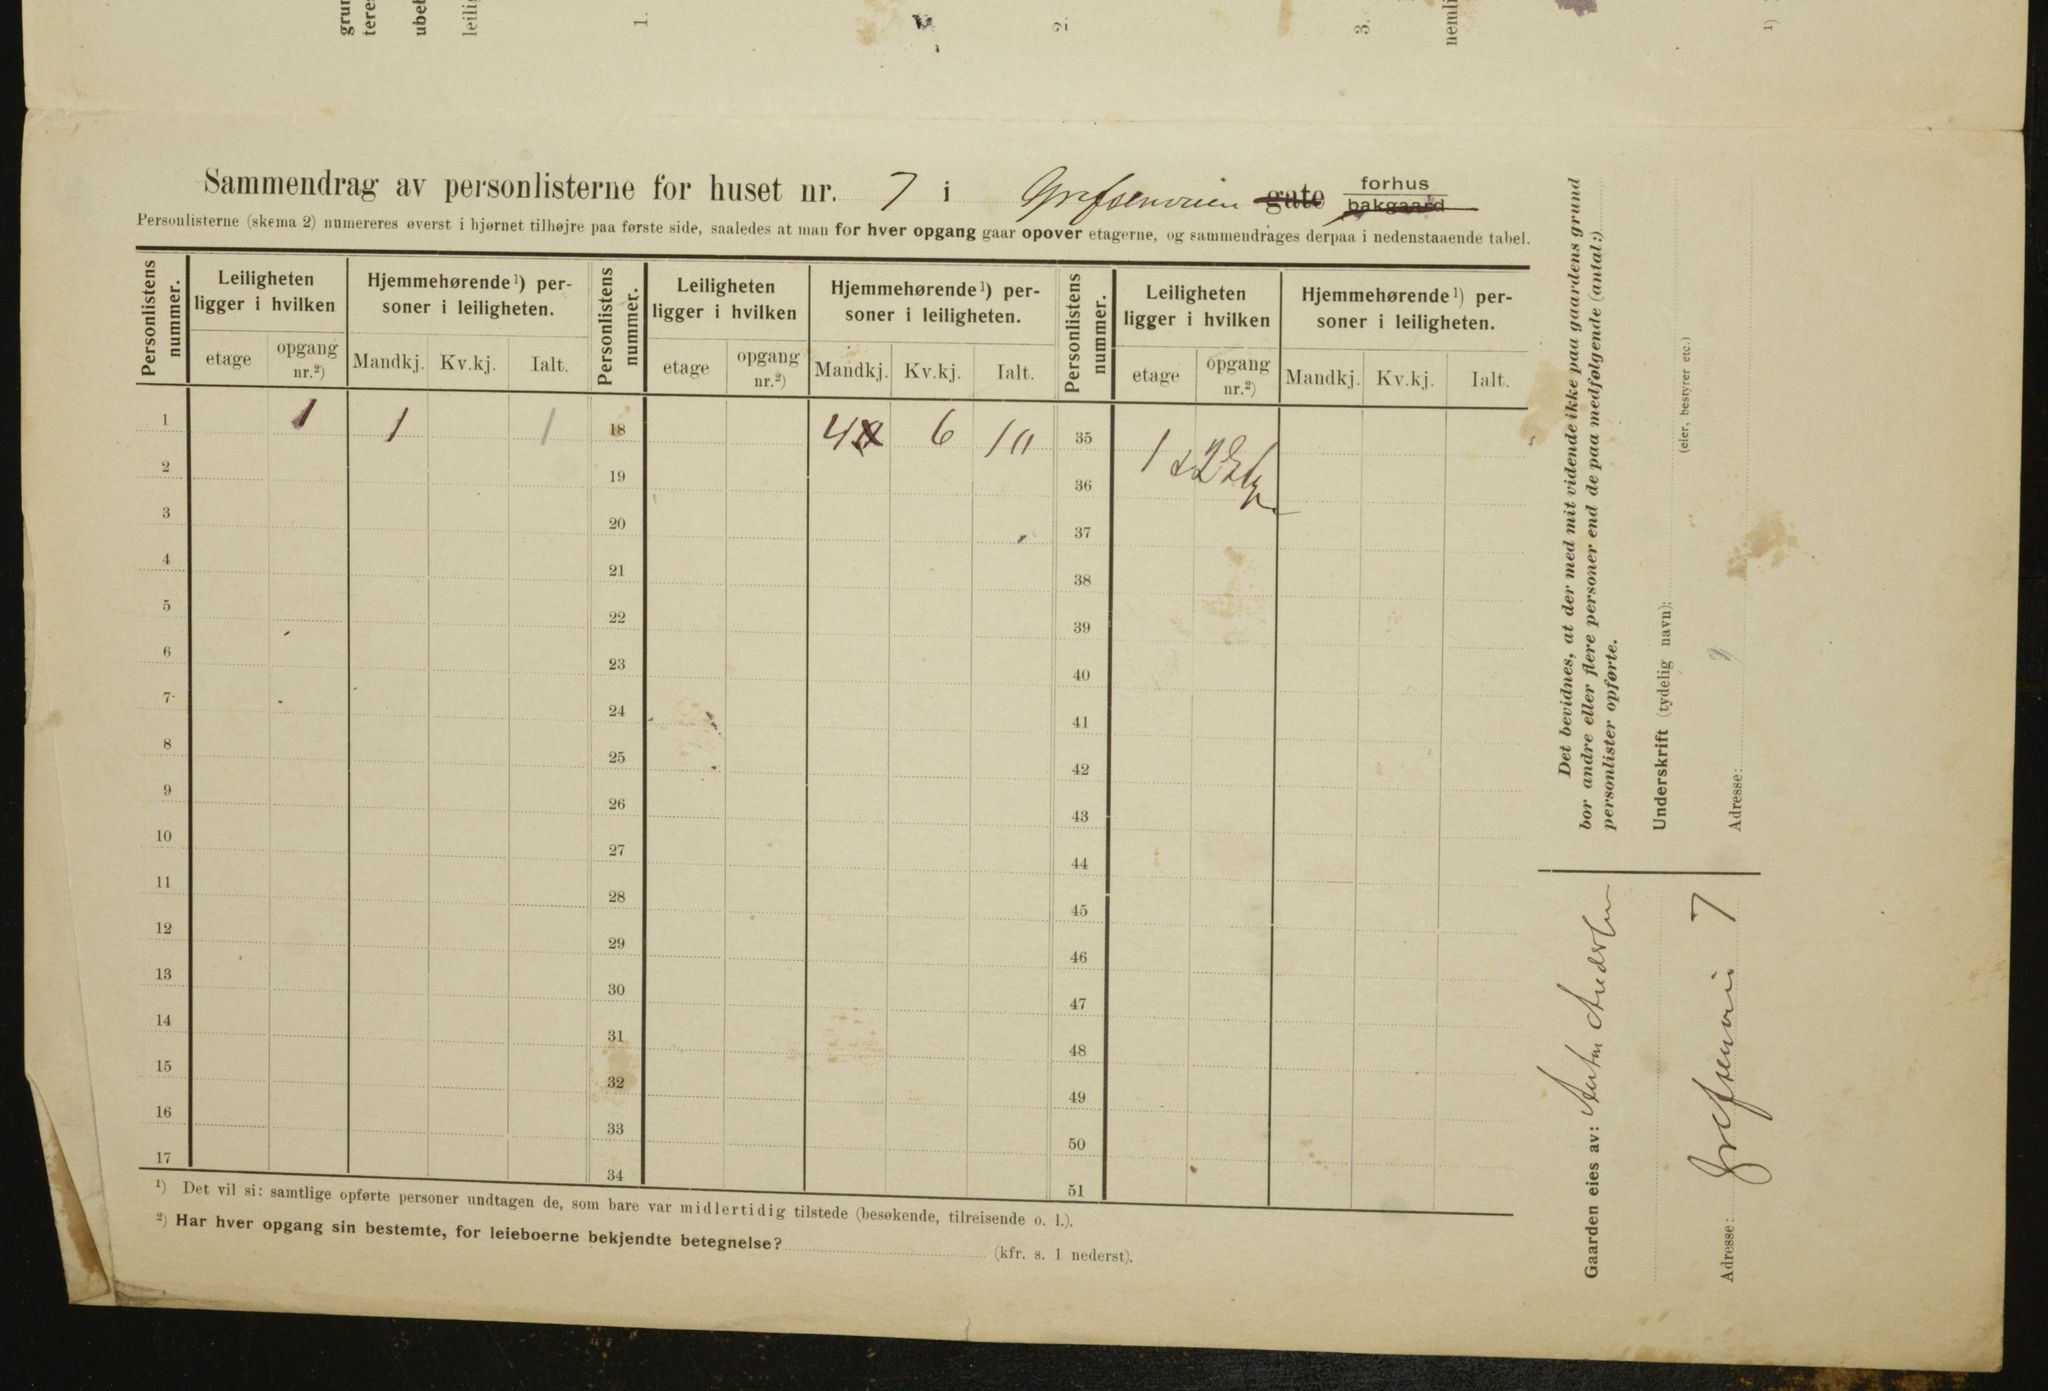 grun
teres
ubeb
leilig
1.
2.
3.
nemli
1)
Sammendrag av personlisterne for huset nr. 7 i Grefsenveien gate forhus
bakgaard
Personlisterne (skema 2) numereres øverst i hjørnet tilhøjre paa første side, saaledes at man for hver opgang gaar opover etagerne, og sammendrages derpaa i nedenstaaende tabel.
Personlistens nummer. Leiligheten ligger i hvilken Hjemmehørende¹) personer i leiligheten. Personlistens nummer. Leiligheten ligger i hvilken Hjemmehørende¹) personer i leiligheten. Personlistens nummer. Leiligheten ligger i hvilken Hjemmehørende¹) personer i leiligheten.
etage opgang nr.²) Mandkj. Kv.kj. Ialt. etage opgang nr.²) Mandkj. Kv.kj. Ialt. etage opgang nr.²) Mandkj. Kv.kj. Ialt.
1 1 1 1 18 4 6 10 35 1 & 2 Etg.
2 19 36
3 20 37
4 21 38
5 22 39
6 23 40
7 24 41
8 25 42
9 26 43
10 27 44
11 28 45
12 29 46
13 30 47
14 31 48
15 32 49
16 33 50
17 34 51
¹) Det vil si: samtlige opførte personer undtagen de, som bare var midlertidig tilstede (besøkende, tilreisende o. l.).
²) Har hver opgang sin bestemte, for leieboerne bekjendte betegnelse? (kfr. s. 1 nederst).
Det bevidnes, at der med mit vidende ikke paa gaardens grund
bor andre eller flere personer end de paa medfølgende (antal:)
personlister opførte.
Underskrift (tydelig navn):
(eier, bestyrer etc.)
Adresse:
Gaarden eies av: Anton Andersen
Adresse: Grefsenvei 7